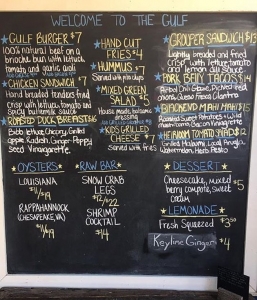 WELCOME TO THE GULF
GULF BURGER $7
100% natural beef on a
brioche bun with lettuce
tomato and garlic aioli
CHICKEN SANDWICH $7
Hand breaded tenders fried
crisp with lettuce, tomato and
spicy buttermilk sauce
ROASTED DUCK BREAST $16
Bibb lettuce, Chicory, Grilled
apple, Radish, Ginger-Poppy
Seed Vinaigrette
HAND CUT
FRIES $4
HUMMUS $7
Served with pita chips
MIXED GREEN
SALAD $5
House made
dressing
KIDS GRILLED
CHEESE $7
Served with fries
GROUPER SANDWICH $13
Lightly breaded and fried
crisp with lettuce, tomato
and lemon dill sauce
PORK BELLY TACOS $14
onions, Queso Fresco, Cilantro
BLACKENED MAHI MAHI $15
Roasted Sweet Potatoes, Wild
HEIRLOOM TOMATO SALAD $12
Grilled Halloumi, Local Arugula,
Watermelon, Herb Pesto
OYSTERS
LOUISIANA
RAPPAHANNOCK
(CHESAPEAKE, VA)
RAW BAR
SNOW CRAB
LEGS
$12/$22
SHRIMP
COCKTAIL
$14
DESSERT
Cheesecake, mixed
berry compote, sweet
cream
$5
LEMONADE
Fresh Squeezed $3.50
Keylime Ginger $4